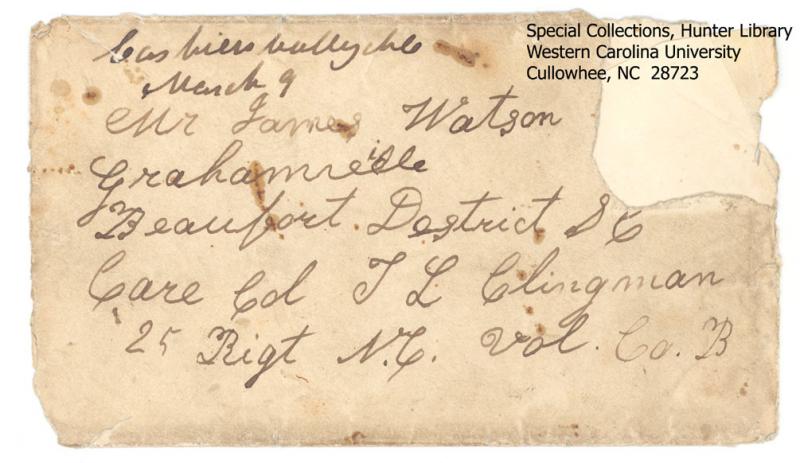 Special Collections, Hunter Library
Western Carolina University
Cullowhee, NC 28723
Cashiers vally NC
March 9
Mr James Watson
Grahamville
Beaufort Destrict S C
Care Col T L Clingman
25 Rigt N.C. Vol. Co. B